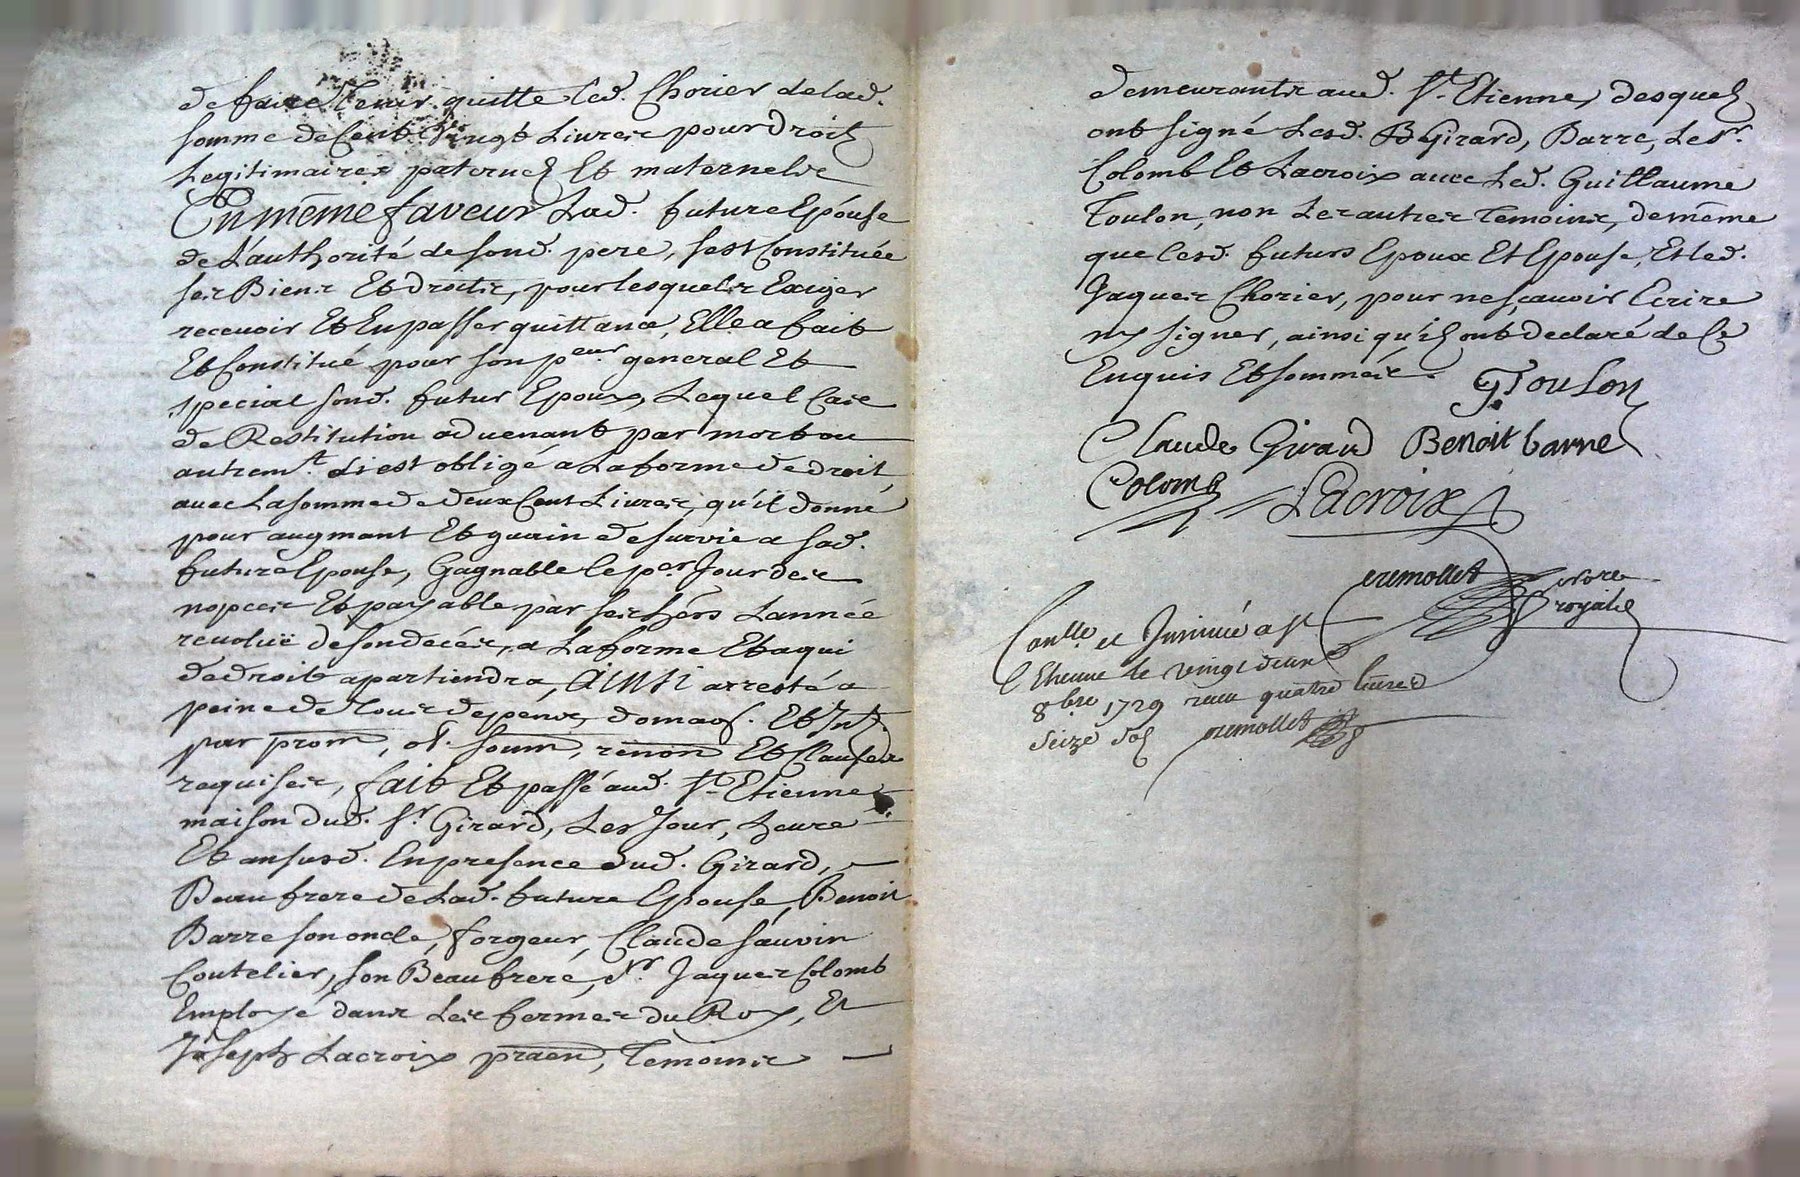 de faire tenir quitte led. Chorier de lad.
somme de Cent Vingt Livres pour droits
Legitimaires paternels Et maternels
En même faveur Lad. future Epouse
de L'authorité de sond. pere, s'est Constituée
ses Biens Et droits, pour lesquels Exiger
recevoir Et En passer quittance, Elle a fait
Et Constitué pour son p.eur general Et
special sond. futur Epoux, Lequel Cas
de Restitution advenant par mort ou
autrem.t s'est obligé a La forme de droit,
avec La somme de deux Cent Livres, qu'il donne
pour augmant Et guain de survie a sad.
future Epouse, Gagnable le p.er Jour des
nopces Et payable par ses hers L'année
revoluë de son decés, a La forme Et a qui
de droit apartiendra, Ainsi arresté a
peine de tous depens, domag. Et Int.
par prom, ob. soum, renon Et Clauses
requises, fait Et passé aud. St. Etienne
maison dud. Sr. Girard, Les Jour, heure
Et an susd. En presence dud. Girard,
Beaufrere de Lad. future Epouse, Benoit
Barre son oncle, forgeur, Claude Sauvin
Coutelier, son Beaufrere, Sr. Jaques Colomb
Employé dans Les fermes du Roy, Et
Joseph Lacroix praen, Temoins
demeurants aud. St. Etienne, desquels
ont signé Lesd. Girard, Barre, Le Sr.
Colomb Et Lacroix avec Led. Guillaume
Toulon, non Les autres Temoins, de même
que lesd. futurs Epoux Et Epouse, Et led.
Jaques Chorier, pour ne sçavoir Ecrire
ny signer, ainsi qu'ils ont declaré de Ce
Enquis Et sommés.
G. Toulon
Claude Girard Benoit barre
Colomb Lacroix
royal
Con.lle et Insinué a St
Etienne le vingt deux
8bre 1729 recu quatre livres
seize sols